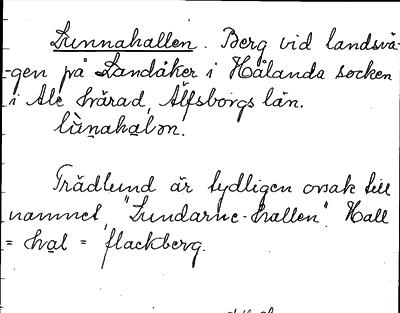 Lunnahallen. Berg vid landsvä-
gen på Landåker i Hålanda socken
i Ale härad, Älfsborgs län.
lùnahalən.
Trädlund är tydligen orsak till
namnet, "Lundarne-hallen". Hall
= hal = flackberg.